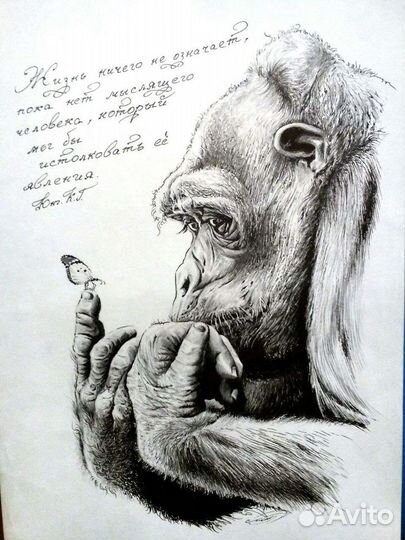 Жизнь ничего не означает,
пока нет мыслящего
человека, который
мог бы
истолковать её
явления.
Ю. К. Г
Avito